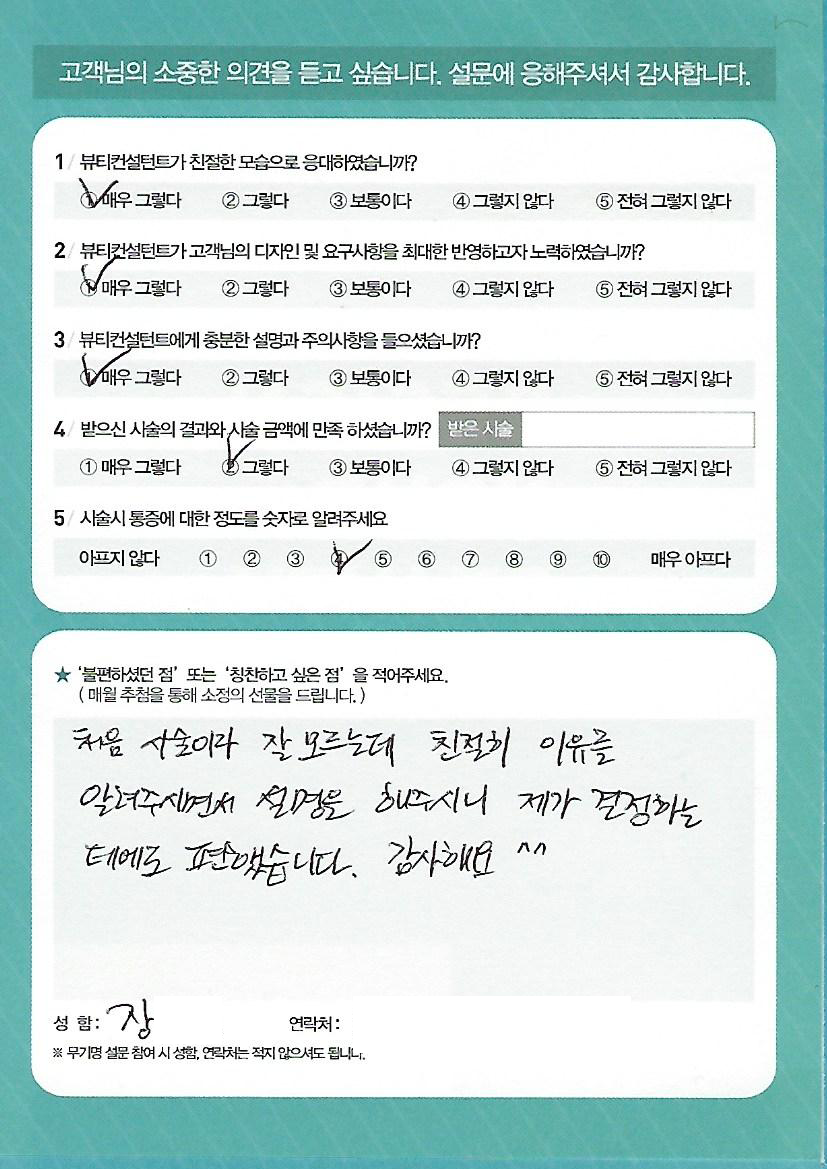 고객님의 소중한 의견을 듣고 싶습니다. 설문에 응해주셔서 감사합니다.
1 / 뷰티컨설턴트가 친절한 모습으로 응대하였습니까?
① 매우 그렇다 ② 그렇다 ③ 보통이다 ④ 그렇지 않다 ⑤ 전혀 그렇지 않다
2 / 뷰티컨설턴트가 고객님의 디자인 및 요구사항을 최대한 반영하고자 노력하였습니까?
① 매우 그렇다 ② 그렇다 ③ 보통이다 ④ 그렇지 않다 ⑤ 전혀 그렇지 않다
3 / 뷰티컨설턴트에게 충분한 설명과 주의사항을 들으셨습니까?
① 매우 그렇다 ② 그렇다 ③ 보통이다 ④ 그렇지 않다 ⑤ 전혀 그렇지 않다
4 / 받으신 시술의 결과와 시술 금액에 만족 하셨습니까? 받은 시술
① 매우 그렇다 ② 그렇다 ③ 보통이다 ④ 그렇지 않다 ⑤ 전혀 그렇지 않다
5 / 시술시 통증에 대한 정도를 숫자로 알려주세요
아프지 않다 ① ② ③ ④ ⑤ ⑥ ⑦ ⑧ ⑨ ⑩ 매우 아프다
★ '불편하셨던 점' 또는 '칭찬하고 싶은 점' 을 적어주세요.
( 매월 추첨을 통해 소정의 선물을 드립니다. )
처음 시술이라 잘 모르는데 친절히 이유를
알려주시면서 설명을 해주시니 제가 결정하는
데에도 편했습니다. 감사해요 ^^
성 함 : 장 연락처 :
※ 무기명 설문 참여 시 성함, 연락처는 적지 않으셔도 됩니다.